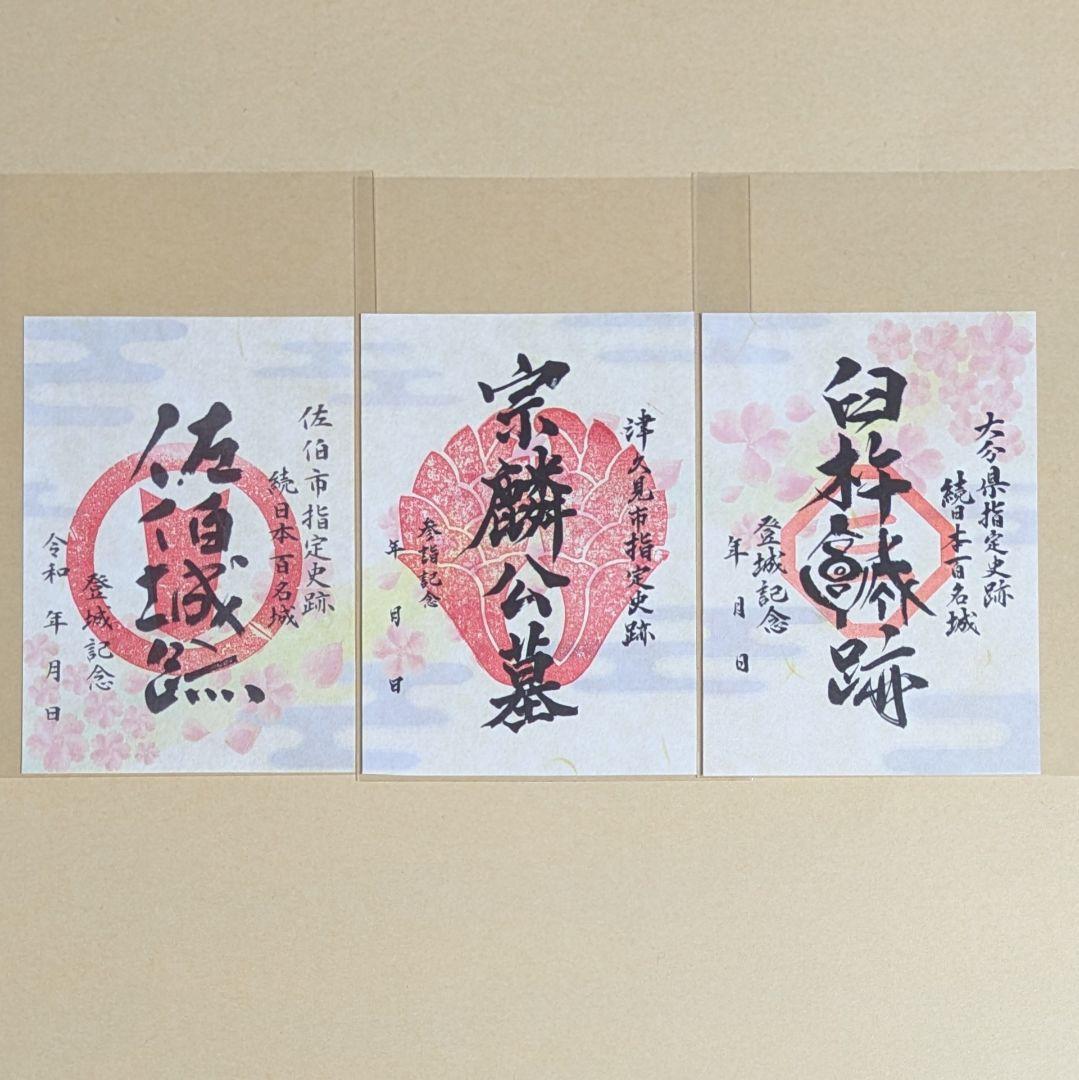 佐伯市指定史跡
続日本百名城
佐伯城跡
登城記念
令和　年　月　日
津久見市指定史跡
宗麟公墓
参詣記念
年　月　日
大分県指定史跡
続日本百名城
臼杵城跡
登城記念
年　月　日